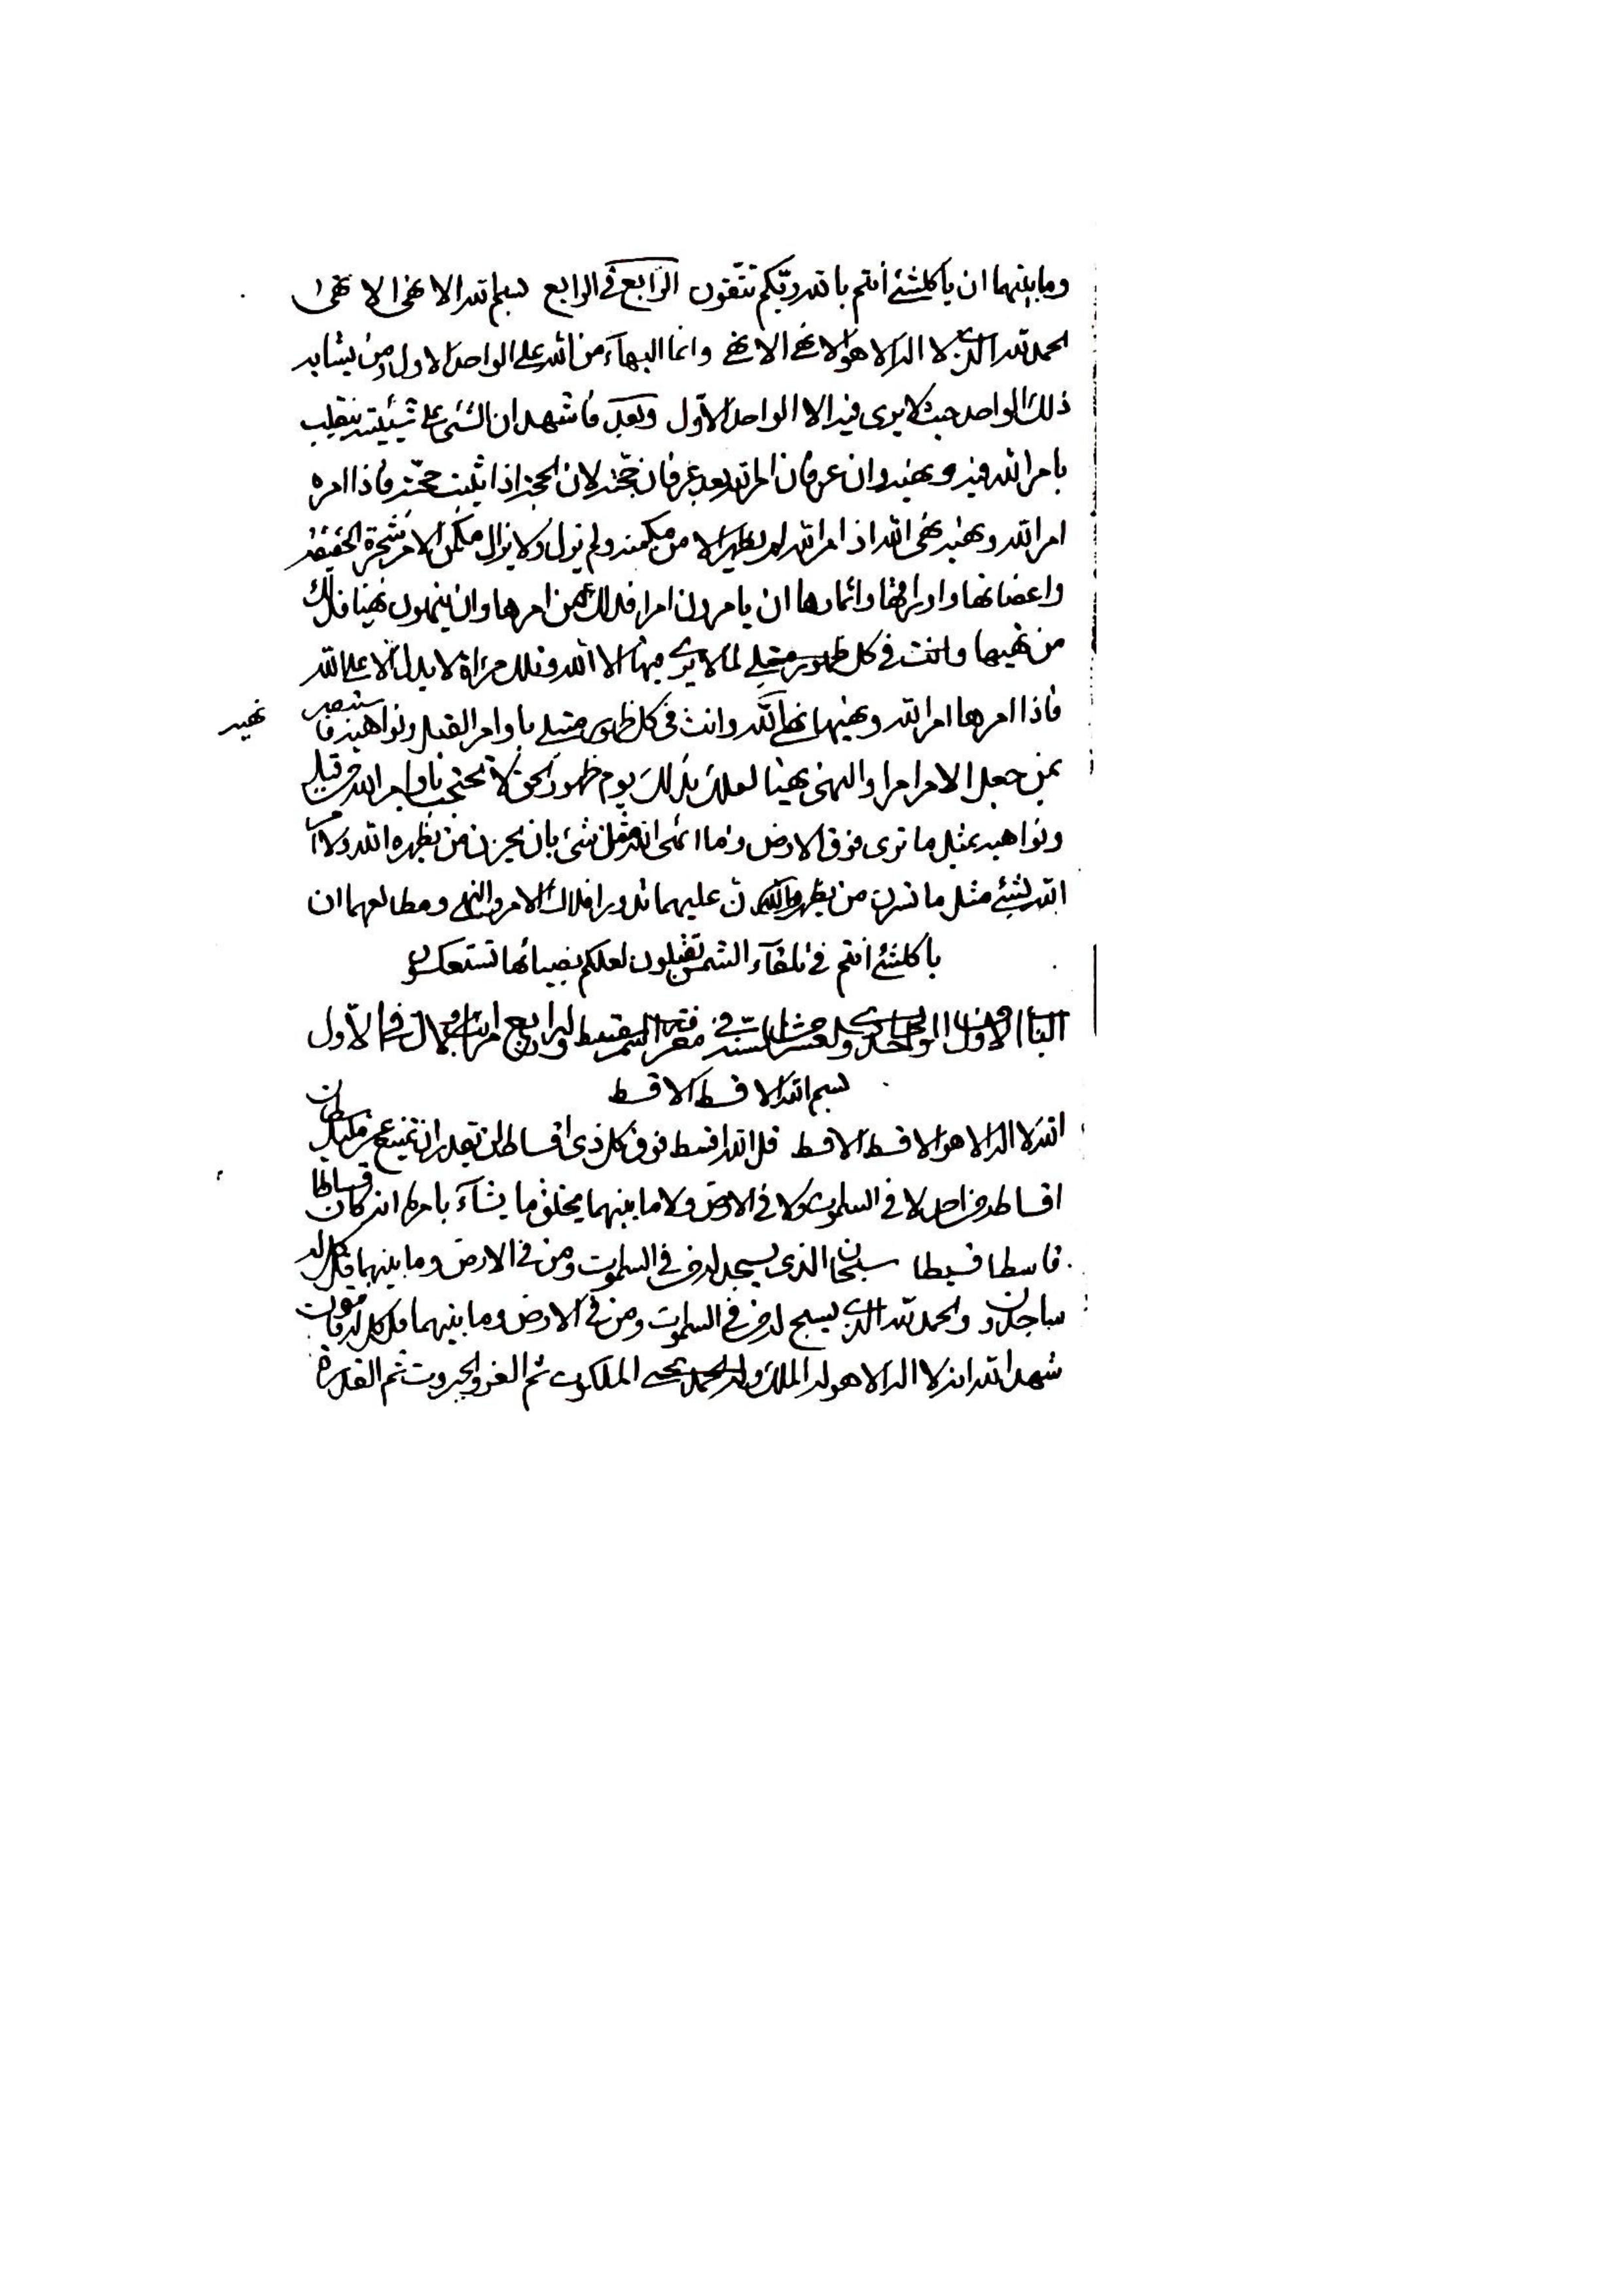 وما بينهما ان يا كلشئ انتم بالله ربكم تتقون الرابع فى الرابع بسم الله الانهى الانهى
الحمد لله الذى لا اله الا هو الانهى الانهى وانما البهآء من الله على الواحد الاول ومن يشابه
ذلك الواحد حيث لا يرى فيه الا الواحد الاول وبعد فاشهد ان الشئ على شيئيته ينقلب
بامر الله فيه ونهيه وان عرفان امر الله بعد عرفان حجته لان الحجة اذا يثبت حجته فاذا امره
امر الله ونهيه نهى الله اذ امر الله لم يظهر الا من مكمنه ولم يزل ولا يزال مكمن الامر شجرة الحقيقة
واغصانها واوراقها واثمارها ان يامرون امرا فذلك من امرها وان ينهون نهيا فذلك
من نهيها وانت فى كل ظهور مبتلى لما لا يرى فيها الا الله وتلك مرآة لا يدل الا على الله
فاذا امرها امر الله ونهيها نهى الله وانت فى كل ظهور مبتلى باوامر القبل ونواهيه فاستبصر
نهيه
بمن جعل الامر امرا والنهى نهيا لعلك بذلك يوم ظهور الحق لا تحتجب باوامر الله من قبل
ونواهيه بمثل ما ترى فوق الارض وما انهى الله مثل شئ بان يحزن من يظهره الله ولا امر
الله بشئ مثل ما تسرن من يظهره الله ن عليهما تدور افلاك الامر والنهى ومطالعهما ان
يا كلشئ انتم فى تلقآء الشمس تقبلون لعلكم بضيائها تستعكسون
الباب الاول من الواحد الحادى والعشر من السنة فى معرفة اسم المقسط وله اربع مراتب الاول فى الاول
بسم الله الاقسط الاقسط
الله لا اله الا هو الاقسط الاقسط قل الله اقسط فوق كل ذى اقساط لن يقدر ان يمتنع عن مليك سلطان
اقساطه من احد لا فى السموات ولا فى الارض ولا ما بينهما يخلق ما يشآء بامره انه كان قساطا
قاسطا قسيطا سبحان الذى يسجد له من فى السموات ومن فى الارض وما بينهما قل كل له
ساجدون والحمد لله الذى يسبح له من فى السموات ومن فى الارض وما بينهما قل كل له قانتون
شهد الله انه لا اله الا هو له الملك والملكوت ثم العز والجبروت ثم القدرة